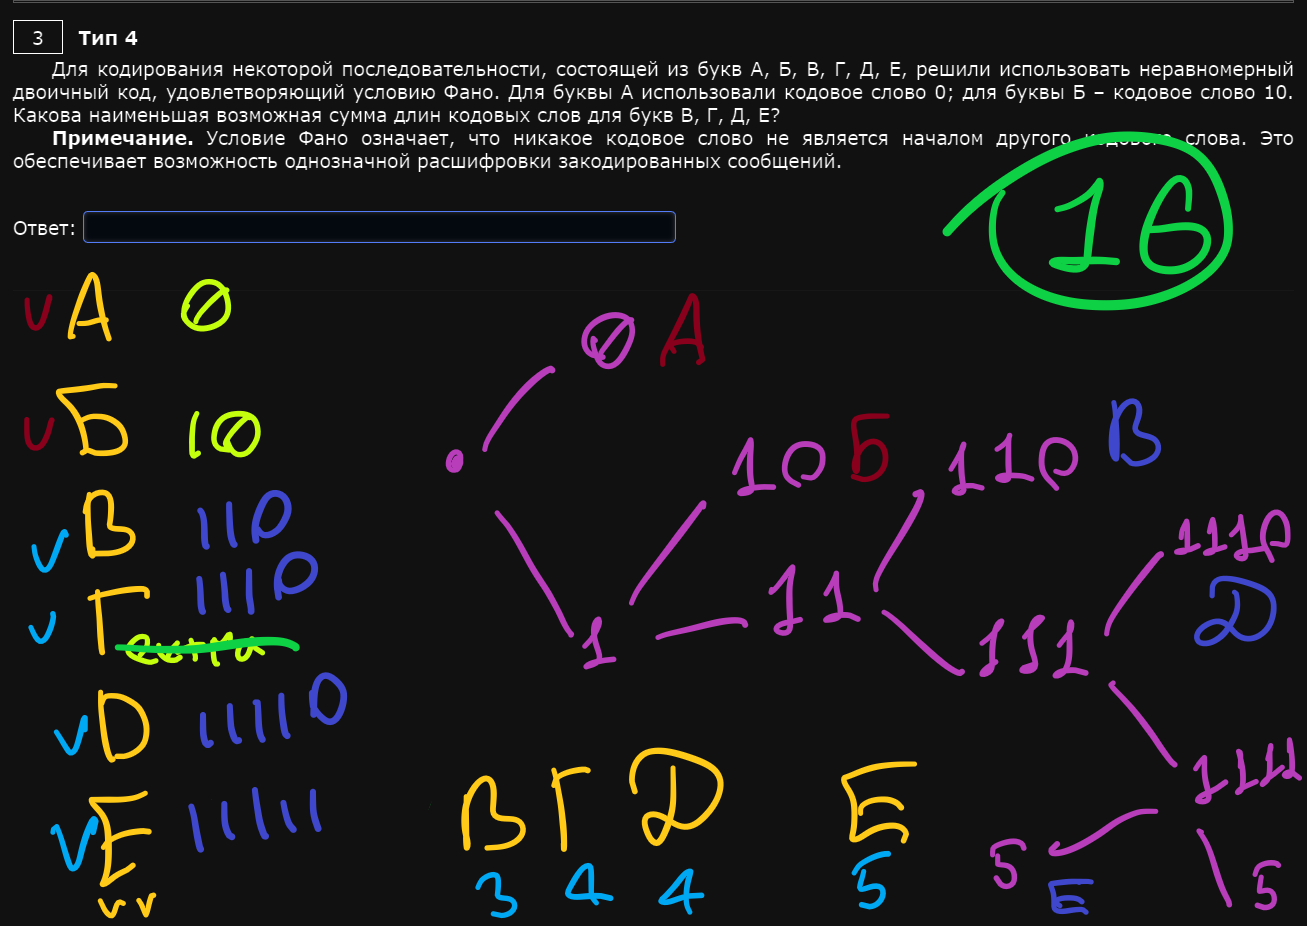 3 Тип 4
Для кодирования некоторой последовательности, состоящей из букв А, Б, В, Г, Д, Е, решили использовать неравномерный
двоичный код, удовлетворяющий условию Фано. Для буквы А использовали кодовое слово 0; для буквы Б – кодовое слово 10.
Какова наименьшая возможная сумма длин кодовых слов для букв В, Г, Д, Е?
Примечание. Условие Фано означает, что никакое кодовое слово не является началом другого кодового слова. Это
обеспечивает возможность однозначной расшифровки закодированных сообщений.
16
Ответ:
А 0
0 А
Б 10
10 Б
110 В
В 110
1110
Д
Г 1110
11
1
111
D 11110
1111
Е 11111
В Г Д Е
3 4 4 5
5
Е
5